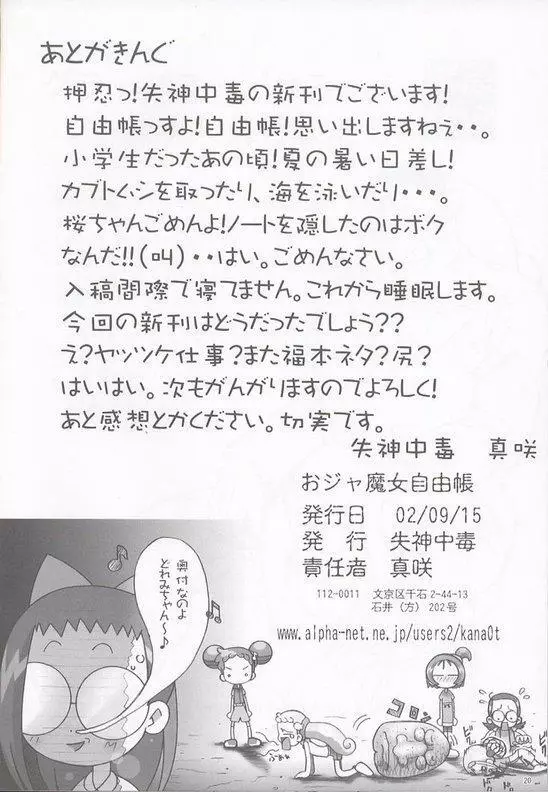 あとがきんぐ
押忍っ!失神中毒の新刊でございます!
自由帳っすよ!自由帳!思い出しますねぇ・・。
小学生だったあの頃!夏の暑い日差し!
カブトムシを取ったり、海を泳いだり・・・。
桜ちゃんごめんよ!ノートを隠したのはボク
なんだ!!(叫)・・はい。ごめんなさい。
入稿間際で寝てません。これから睡眠します。
今回の新刊はどうだったでしょう??
え?ヤッツケ仕事?また福本ネタ?尻?
はいはい。次もがんがりますのでよろしく!
あと感想とかください。切実です。
失神中毒 真咲
おジャ魔女自由帳
発行日 02/09/15
発行 失神中毒
責任者 真咲
112-0011 文京区千石2-44-13
石井(方)202号
www.alpha-net.ne.jp/users2/kana0t
奥付なのよ
どれみちゃん~♪
コロン
20